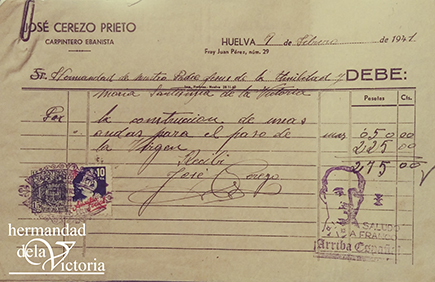 JOSÉ CEREZO PRIETO
CARPINTERO EBANISTA
HUELVA 9 de Febrero de 1941
Fray Juan Pérez, núm. 29
Sr. Hermandad de nuestro Padre Jesus de la Humildad y DEBE:
Maria Santisima de la Victoria
Pesetas Cts.
Por la construcion de unas
andas para el paso de
la Virgen
050 00
225 00
275 00
Recibi
José Cerezo
10
SALUDO
A FRANCO
Arriba España
hermandad
dela
Victoria